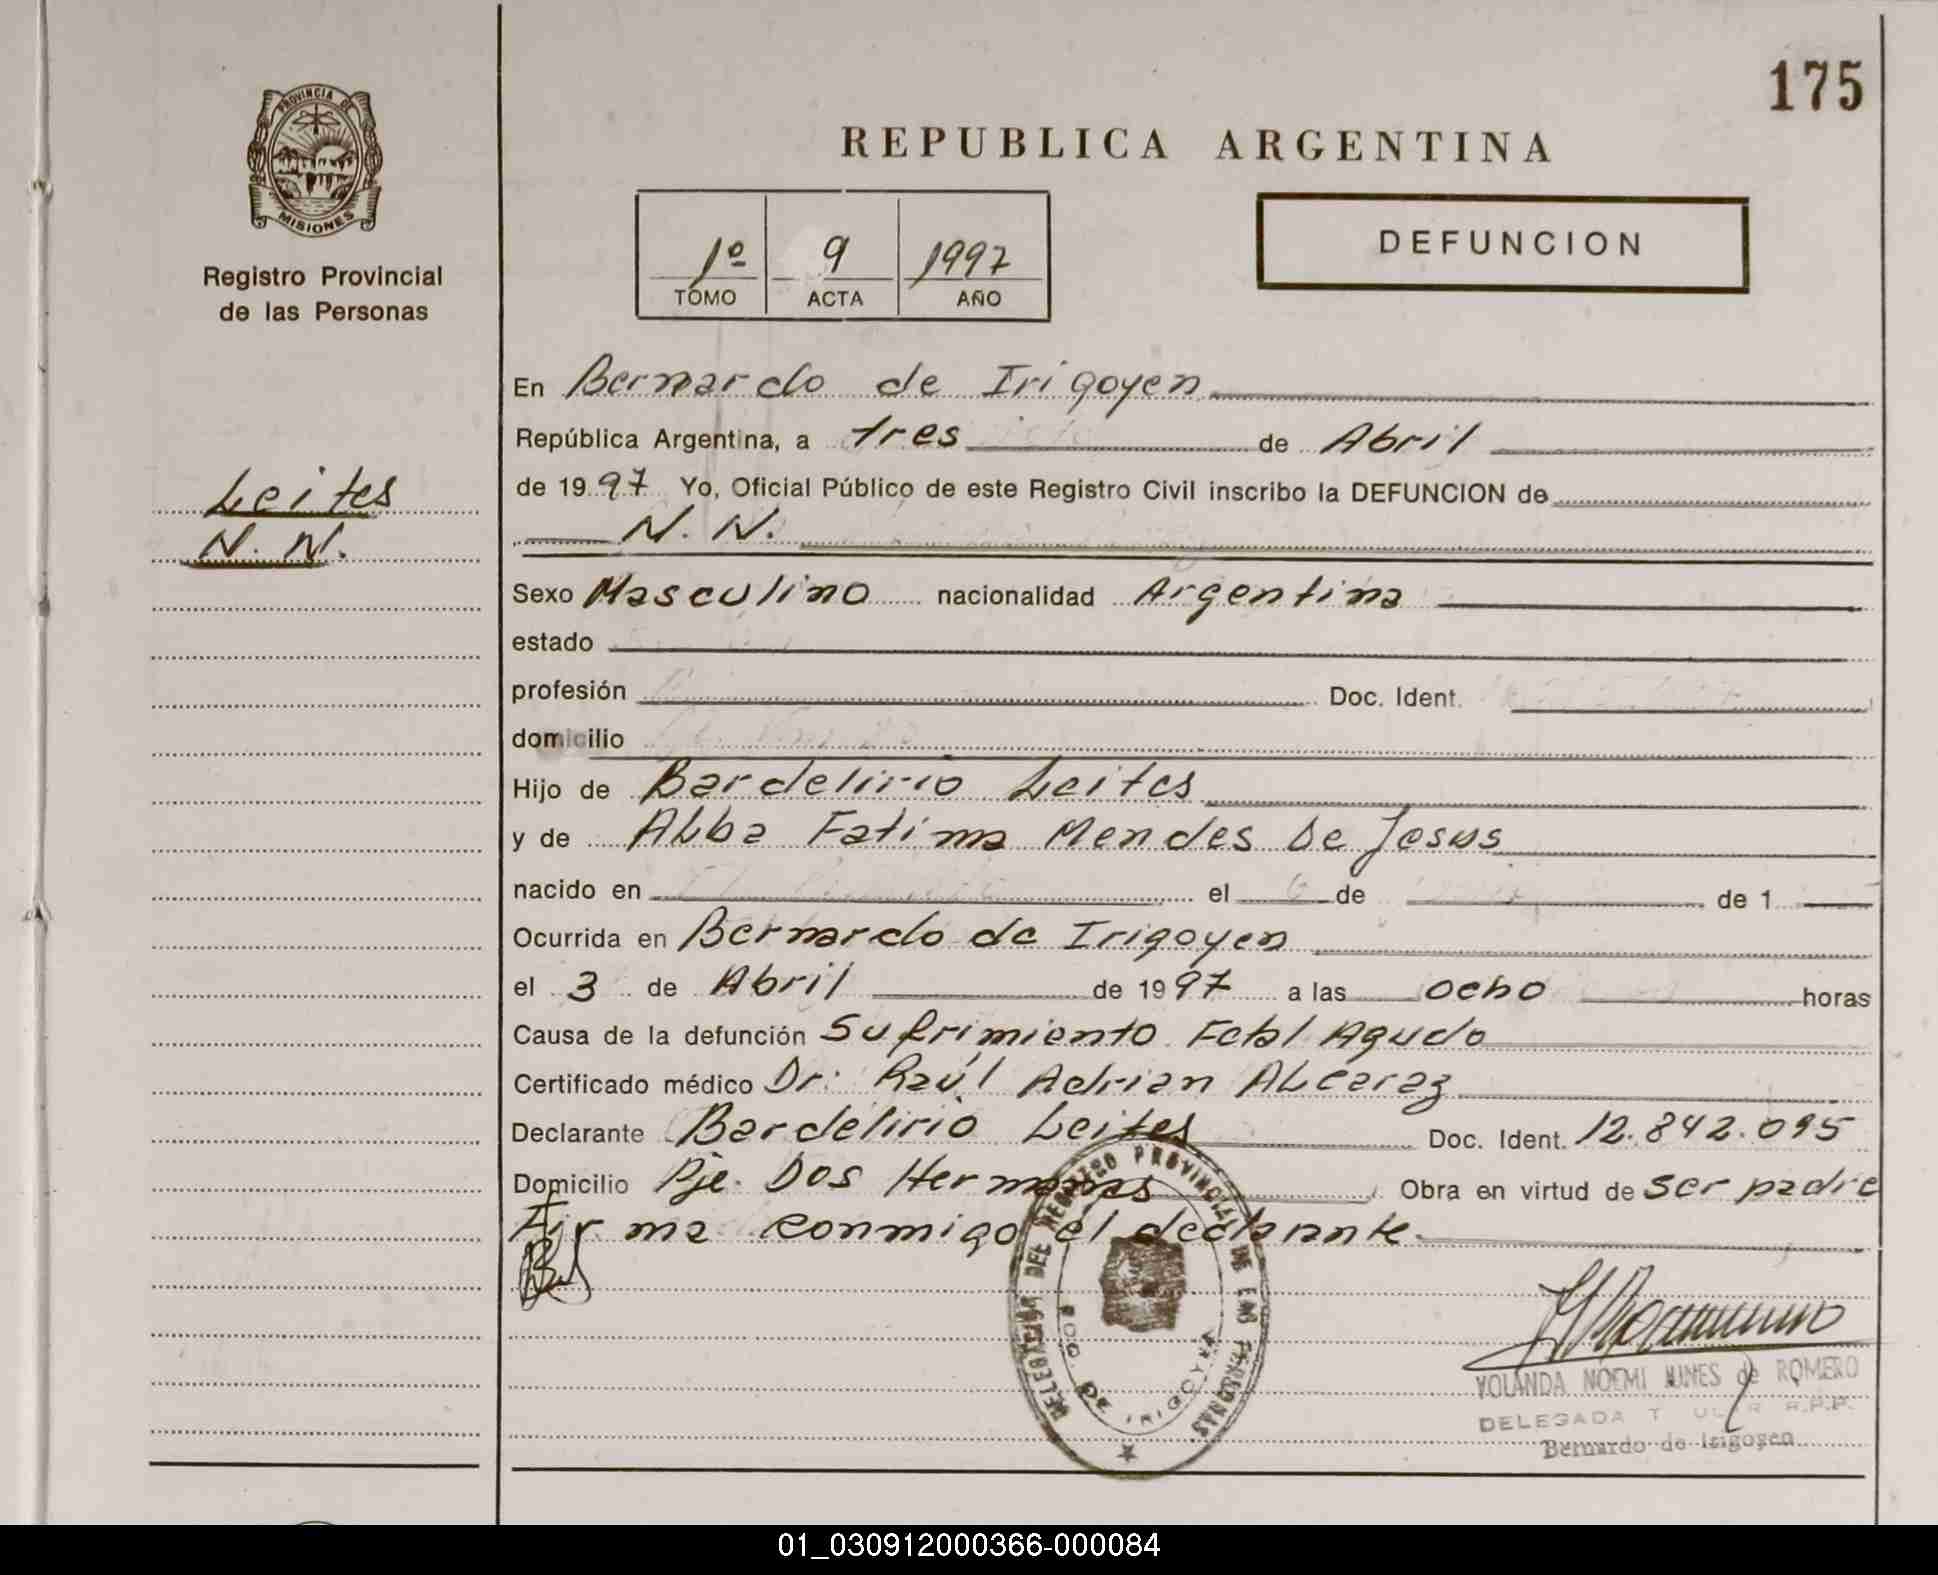 175
PROVINCIA DE
MISIONES
Registro Provincial
de las Personas
REPUBLICA ARGENTINA
1º 9 1997
TOMO ACTA AÑO
DEFUNCION
Leites
N. N.
En Bernardo de Irigoyen
República Argentina, a tres de Abril
de 1997 Yo, Oficial Público de este Registro Civil inscribo la DEFUNCION de
N. N.
Sexo Masculino nacionalidad Argentina
estado
profesión Doc. Ident.
domicilio
Hijo de Bardelirio Leites
y de ALba Fatima Mendes De Jesus
nacido en el de de 1
Ocurrida en Bernardo de Irigoyen
el 3 de Abril de 1997 a las ocho horas
Causa de la defunción Sufrimiento Fetal Agudo
Certificado médico Dr: Raúl Adrian ALcaraz
Declarante Bardelirio Leites Doc. Ident. 12.842.095
Domicilio Pje. Dos Hermanas Obra en virtud de ser padre
Firma conmigo el declarante.
DELEGACION DEL REGISTRO PROVINCIAL DE LAS PERSONAS
BDO. DE IRIGOYEN
YOLANDA NOEMI NUNES de ROMERO
DELEGADA R.P.P.
Bernardo de Irigoyen
01_030912000366-000084